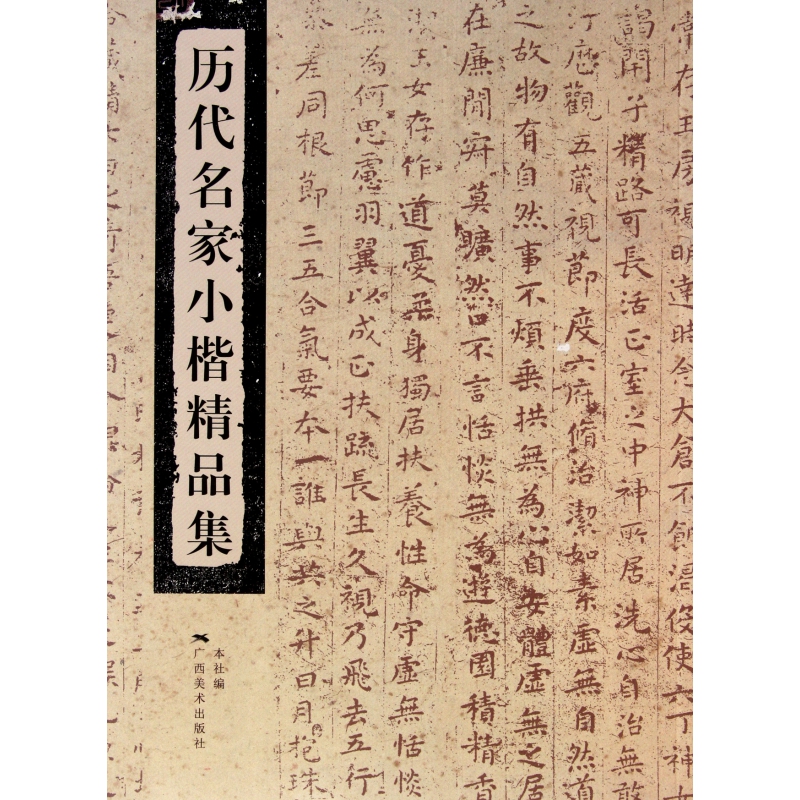 历代名家小楷精品集
本社编
广西美术出版社
常在玉房视明达时念大仓不饥渴役使六丁神女
谒闭子精路可长活正室之中神所居洗心自治无敢
汙歷觀五藏視節度六府脩治潔如素虛無自然道
之故物有自然事不煩垂拱無為心自安體虛無之居
在廉閒寂莫曠然口不言恬惔無為遊德園積精香
潔玉女存作道憂柔身獨居扶養性命守虛無恬惔
無為何思慮羽翼以成正扶疏長生久視乃飛去五行
參差同根節三五合氣要本一誰與共之升日月抱珠